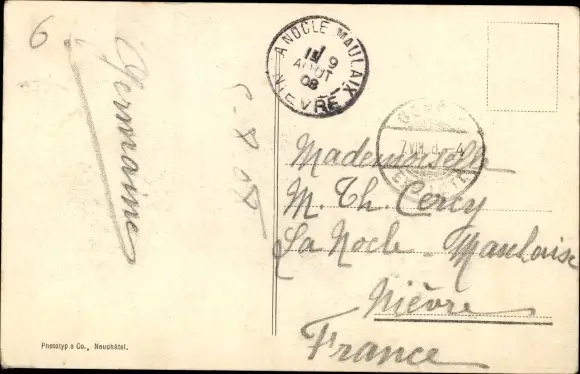 6
Germaine
6-8-08
LA NOCLE MAULAIX
9
AOUT
08
NIÈVRE
7.VIII.8.-4
Mademoiselle
M. Th. Cercy
La Nocle-Maulaise
Nièvre
France
Phototyp.e Co., Neuchâtel.